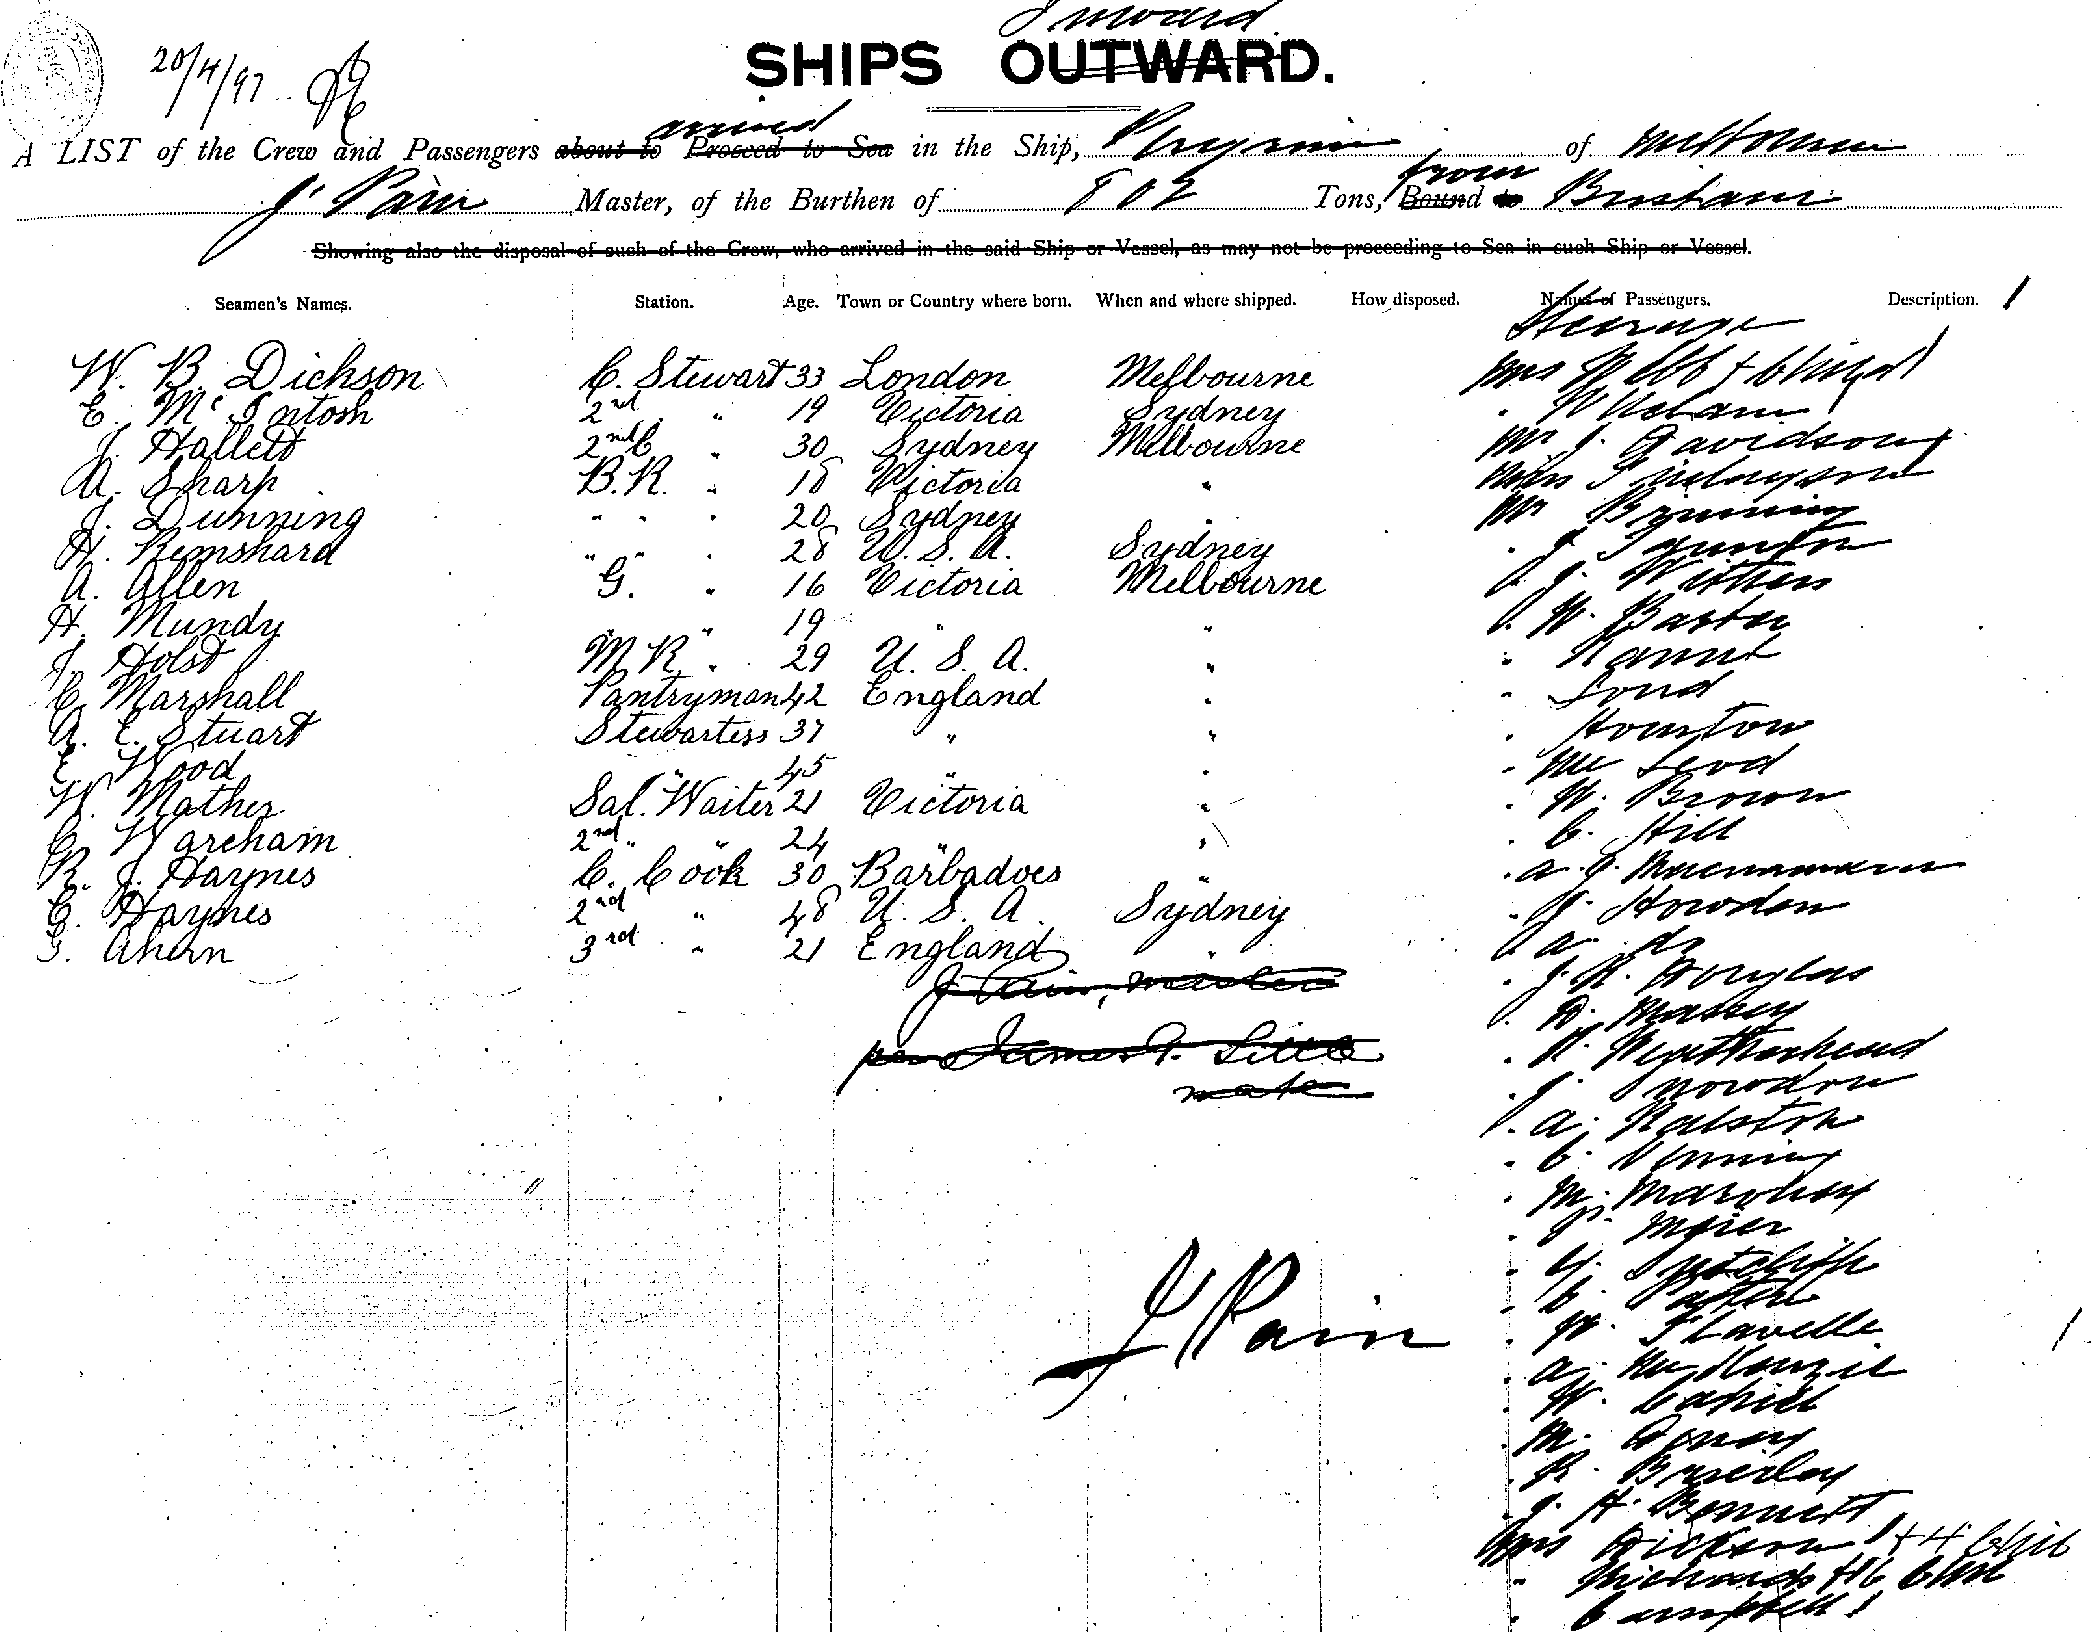 Inward
SHIPS OUTWARD.
20/4/97
arrived
A LIST of the Crew and Passengers about to Proceed to Sea in the Ship, of Melbourne
from
J Pain Master, of the Burthen of 802 Tons, Bound to Brisbane
Showing also the disposal of such of the Crew, who arrived in the said Ship or Vessel, as may not be proceeding to Sea in such Ship or Vessel.
Seamen's Names. Station. Age. Town or Country where born. When and where shipped. How disposed. Names of Passengers. Description.
Steerage
W. B. Dickson C. Stewart 33 London Melbourne Mrs Webb + Child 1
E. McIntosh 2nd " 19 Victoria Sydney " Whelan
J. Hallett 2nd C " 30 Sydney Melbourne Mr J. Davidson
A. Sharp B.R. " 18 Victoria " Miss Finlayson
J. Dunning " " " 20 Sydney " Mr
H. Remshard " " " 28 U.S.A. Sydney " J.
A. Allen G. " 16 Victoria Melbourne " J. Withers
H. Mundy " " 19 " " " W. Baxter
J. Holst M.R. " 29 U.S.A. " "
C. Marshall Pantryman 42 England " " Lond
A. E. Stuart Stewartess 37 " " " Houston
E. Wood " 45 " " " McLeod
W. Mather Sal. Waiter 21 Victoria " " W. Brown
G. Wareham 2nd " " 24 " " " C. Hill
R. J. Haynes C. Cook 30 Barbadoes " " A. J.
C. Haynes 2nd " 48 U.S.A. Sydney " J. Howden
G. Ahern 3rd " 21 England " " A. do
J Pain, master
per James A. Little
mate
" J. H. Douglas
" D. Massey
" W. Weatherhead
" J. Snowdon
" A. Ralston
" C. Venning
" M.
" P. Meier
" G. Sutcliffe
" C.
" W. Flavelle
" A. McKenzie
" W. Cahill
" M.
" R.
" J. H. Bennett
Mrs Dickson 1 + 4 Chil
" Richards + 6 Chil
" Campbell 1
J Pain